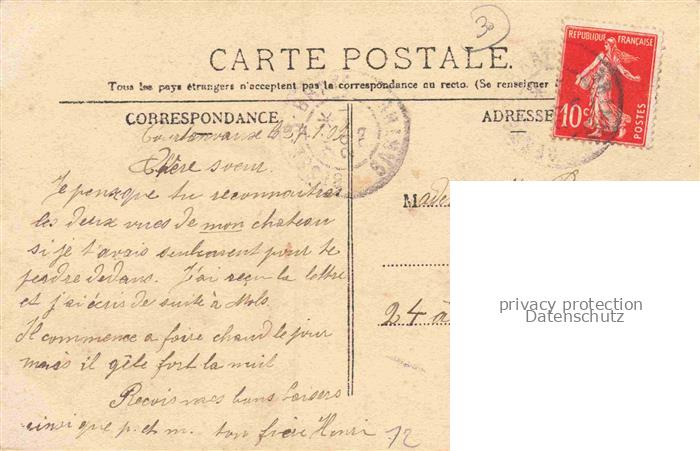 38
CARTE POSTALE.
Tous les pays étrangers n'acceptent pas la correspondance au recto. (Se renseigner
REPUBLIQUE FRANÇAISE
10c
POSTES
CORRESPONDANCE
ADRESSE
Courtanvaux le
Chère sœur
Je pense que tu reconnaitras
les deux vues de mon château
si je t'avais seulement pour te
perdre dedans. J'ai reçu ta lettre
et j'ai écris de suite à
Il commence a faire chaud le jour
mais il gèle fort la nuit
Recois mes bons baisers
ainsi que p. et m. ton frère Henri
72
Made
24 à
privacy protection
Datenschutz